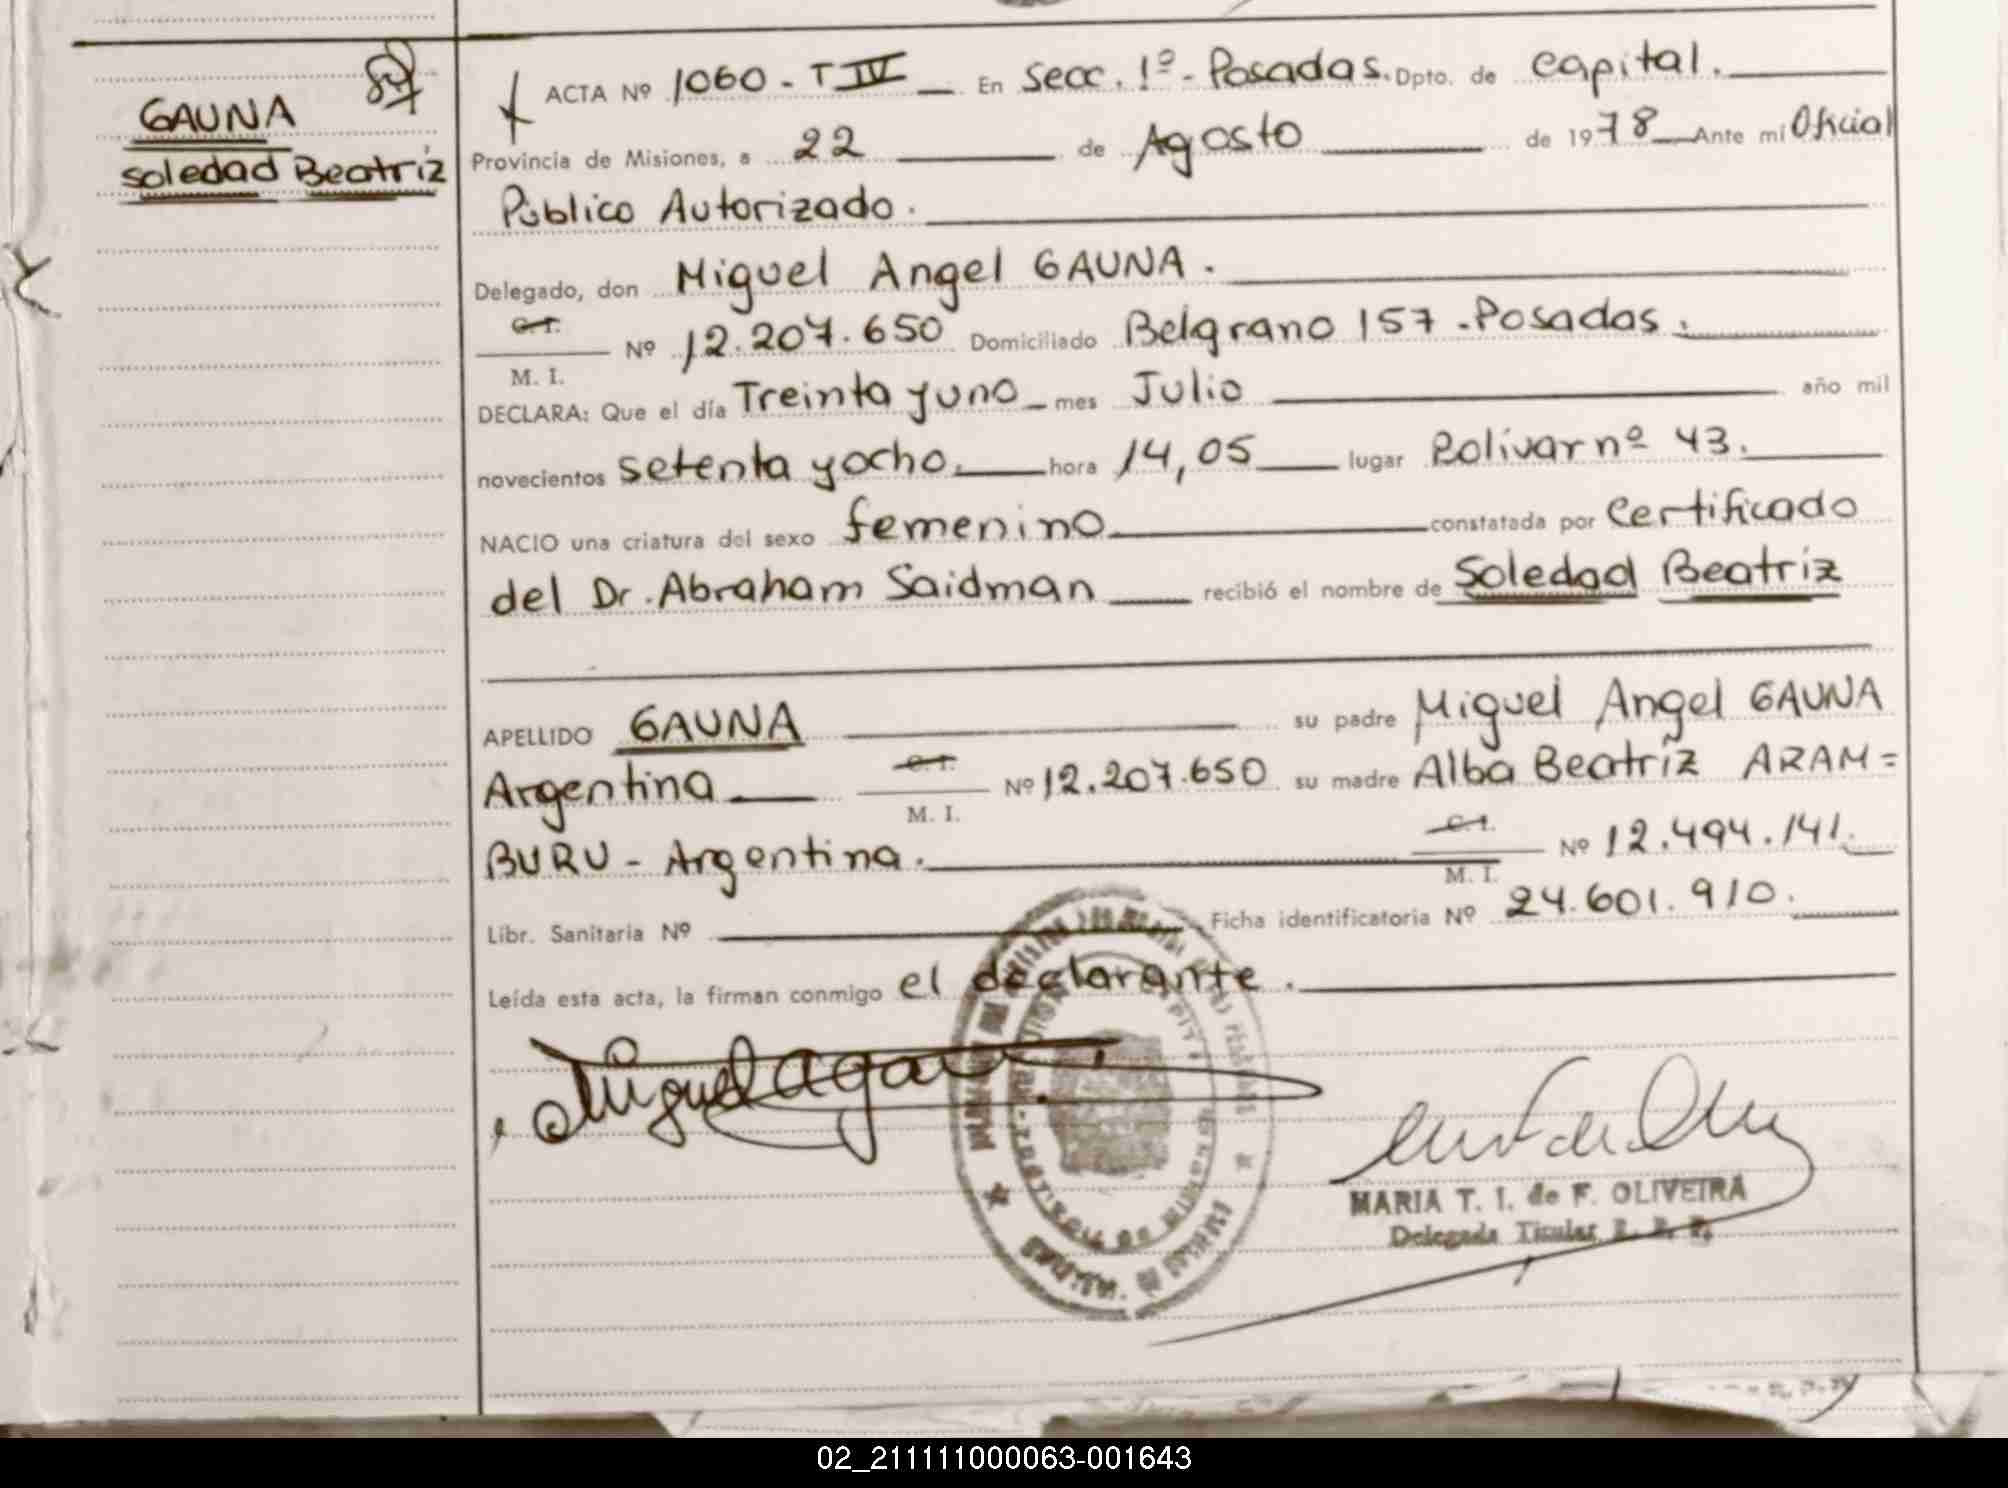 GAUNA
Soledad Beatriz
ACTA Nº 1060 - T IV En Secc. 1º - Posadas. Dpto. de Capital.
Provincia de Misiones, a 22 de Agosto de 1978 Ante mí Oficial
Público Autorizado.
Delegado, don Miguel Angel GAUNA.
C.I.
Nº 12.207.650 Domiciliado Belgrano 157 - Posadas.
M. I.
DECLARA: Que el día Treinta y uno mes Julio año mil
novecientos setenta y ocho. hora 14,05 lugar Bolívar nº 43.
NACIO una criatura del sexo femenino constatada por Certificado
del Dr. Abraham Saidman recibió el nombre de Soledad Beatriz
APELLIDO GAUNA su padre Miguel Angel GAUNA
Argentina C. I. Nº 12.207.650 su madre Alba Beatriz ARAM=
M. I.
BURU - Argentina. C. I. Nº 12.494.141.
M. I.
Libr. Sanitaria Nº Ficha identificatoria Nº 24.601.910.
Leída esta acta, la firman conmigo el declarante.
Miguel A Gau
MARIA T. I. de F. OLIVEIRA
Delegada Titular R. P. P.
02_211111000063-001643